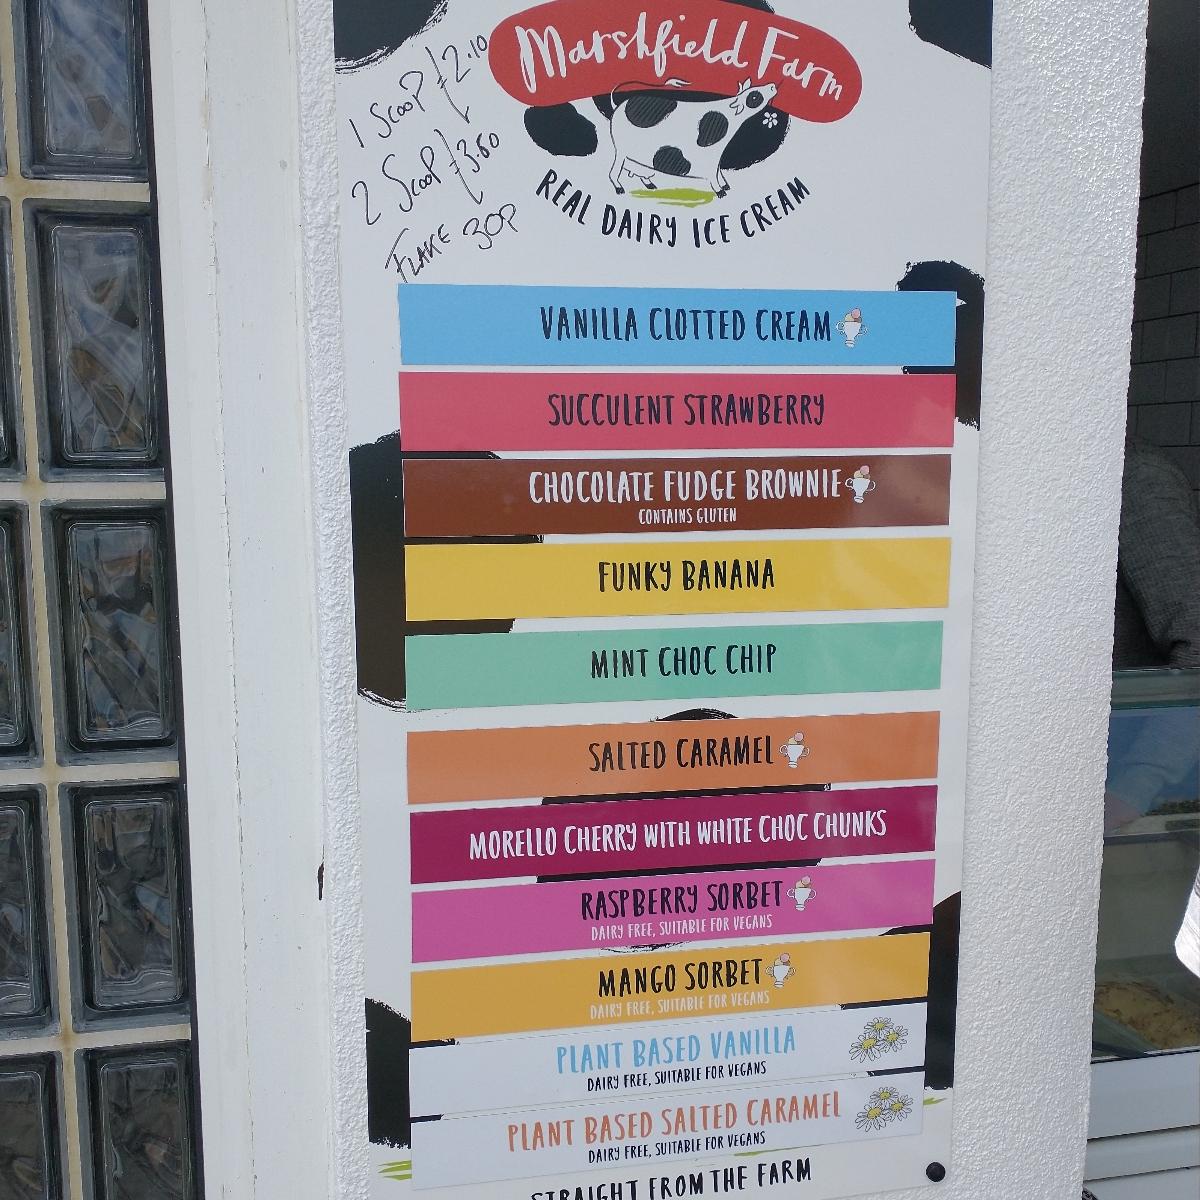 Marshfield Farm
REAL DAIRY ICE CREAM
1 SCOOP £2.10
2 SCOOP £3.60
FLAKE 30P
VANILLA CLOTTED CREAM
SUCCULENT STRAWBERRY
CHOCOLATE FUDGE BROWNIE
CONTAINS GLUTEN
FUNKY BANANA
MINT CHOC CHIP
SALTED CARAMEL
MORELLO CHERRY WITH WHITE CHOC CHUNKS
RASPBERRY SORBET
DAIRY FREE, SUITABLE FOR VEGANS
MANGO SORBET
DAIRY FREE, SUITABLE FOR VEGANS
PLANT BASED VANILLA
DAIRY FREE, SUITABLE FOR VEGANS
PLANT BASED SALTED CARAMEL
DAIRY FREE, SUITABLE FOR VEGANS
STRAIGHT FROM THE FARM